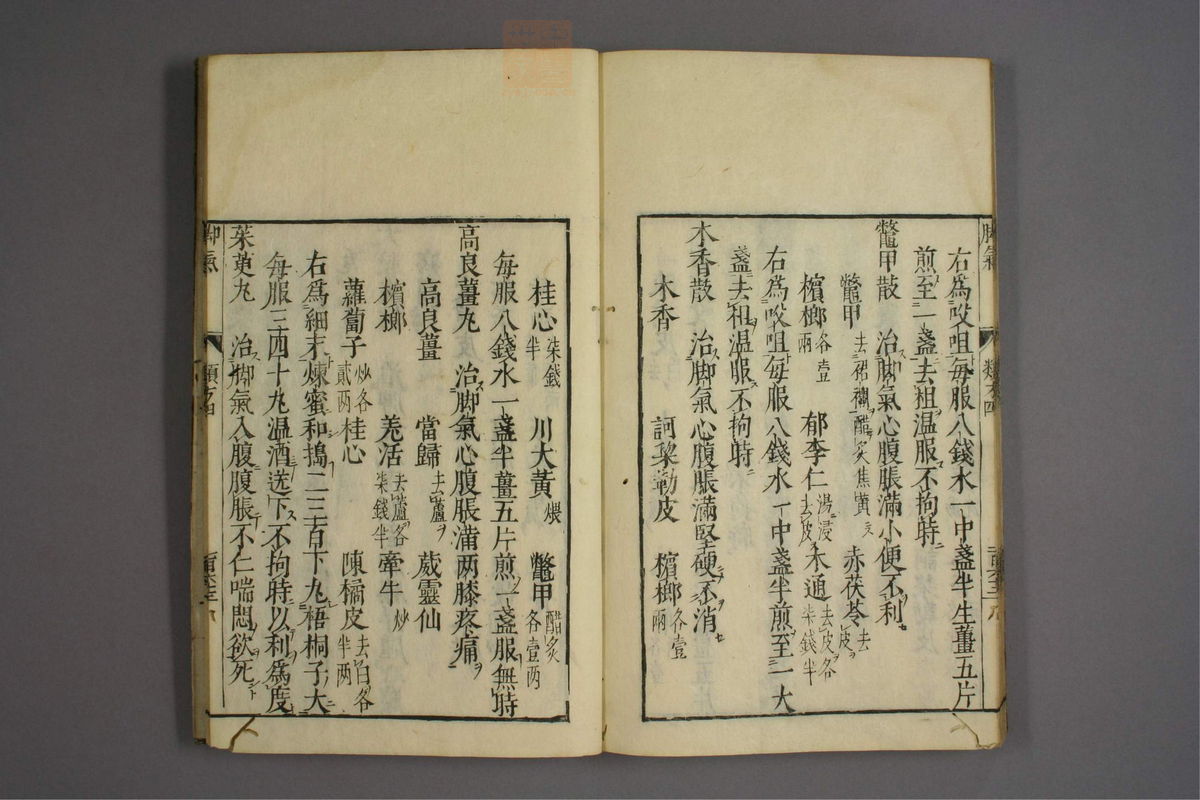 右爲㕮咀每服八錢水一中盞半生薑五片
煎至一盞去柤温服不拘時
鼈甲散 治脚氣心腹脹滿小便不利
鼈甲去裙襴醋炙焦黃 赤茯苓去皮
檳榔各壹兩 郁李仁湯浸去皮 木通去皮各柒錢半
右爲㕮咀每服八錢水一中盞半煎至一大
盞去柤温服不拘時
木香散 治脚氣心腹脹滿堅硬不消
木香 訶梨勒皮 檳榔各壹兩
桂心柒錢半 川大黃煨 鼈甲醋炙各壹两
每服八錢水一盞半薑五片煎一盞服無時
高良薑丸 治脚氣心腹脹滿两膝疼痛
高良薑 當歸去蘆 葳靈仙
檳榔 羗活去蘆各柒錢半 牽牛炒
蘿蔔子炒各貳两 桂心 陳橘皮去白各半两
右爲細末煉蜜和搗二三百下丸梧桐子大
每服三四十丸温酒送下不拘時以利爲度
茱萸丸 治脚氣入腹腹脹不仁喘悶欲死
脚氣 類方四